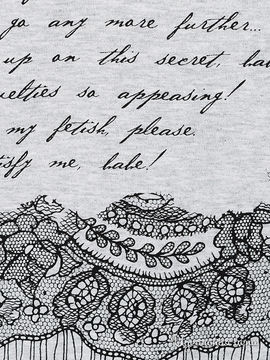 go any more further...
up on this secret, ba
uelties so appeasing!
my fetish, please.
tisfy me, babe!